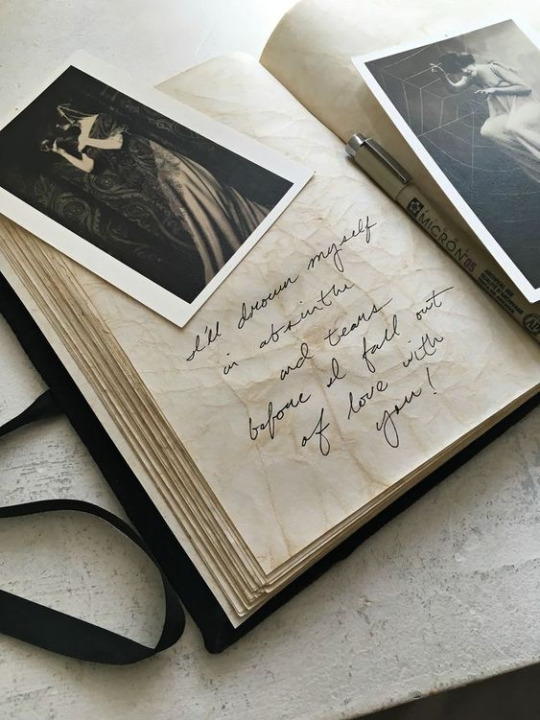 I'll drown myself
in absinthe
and tears
before I fall out
of love with
you!
MICRON 05